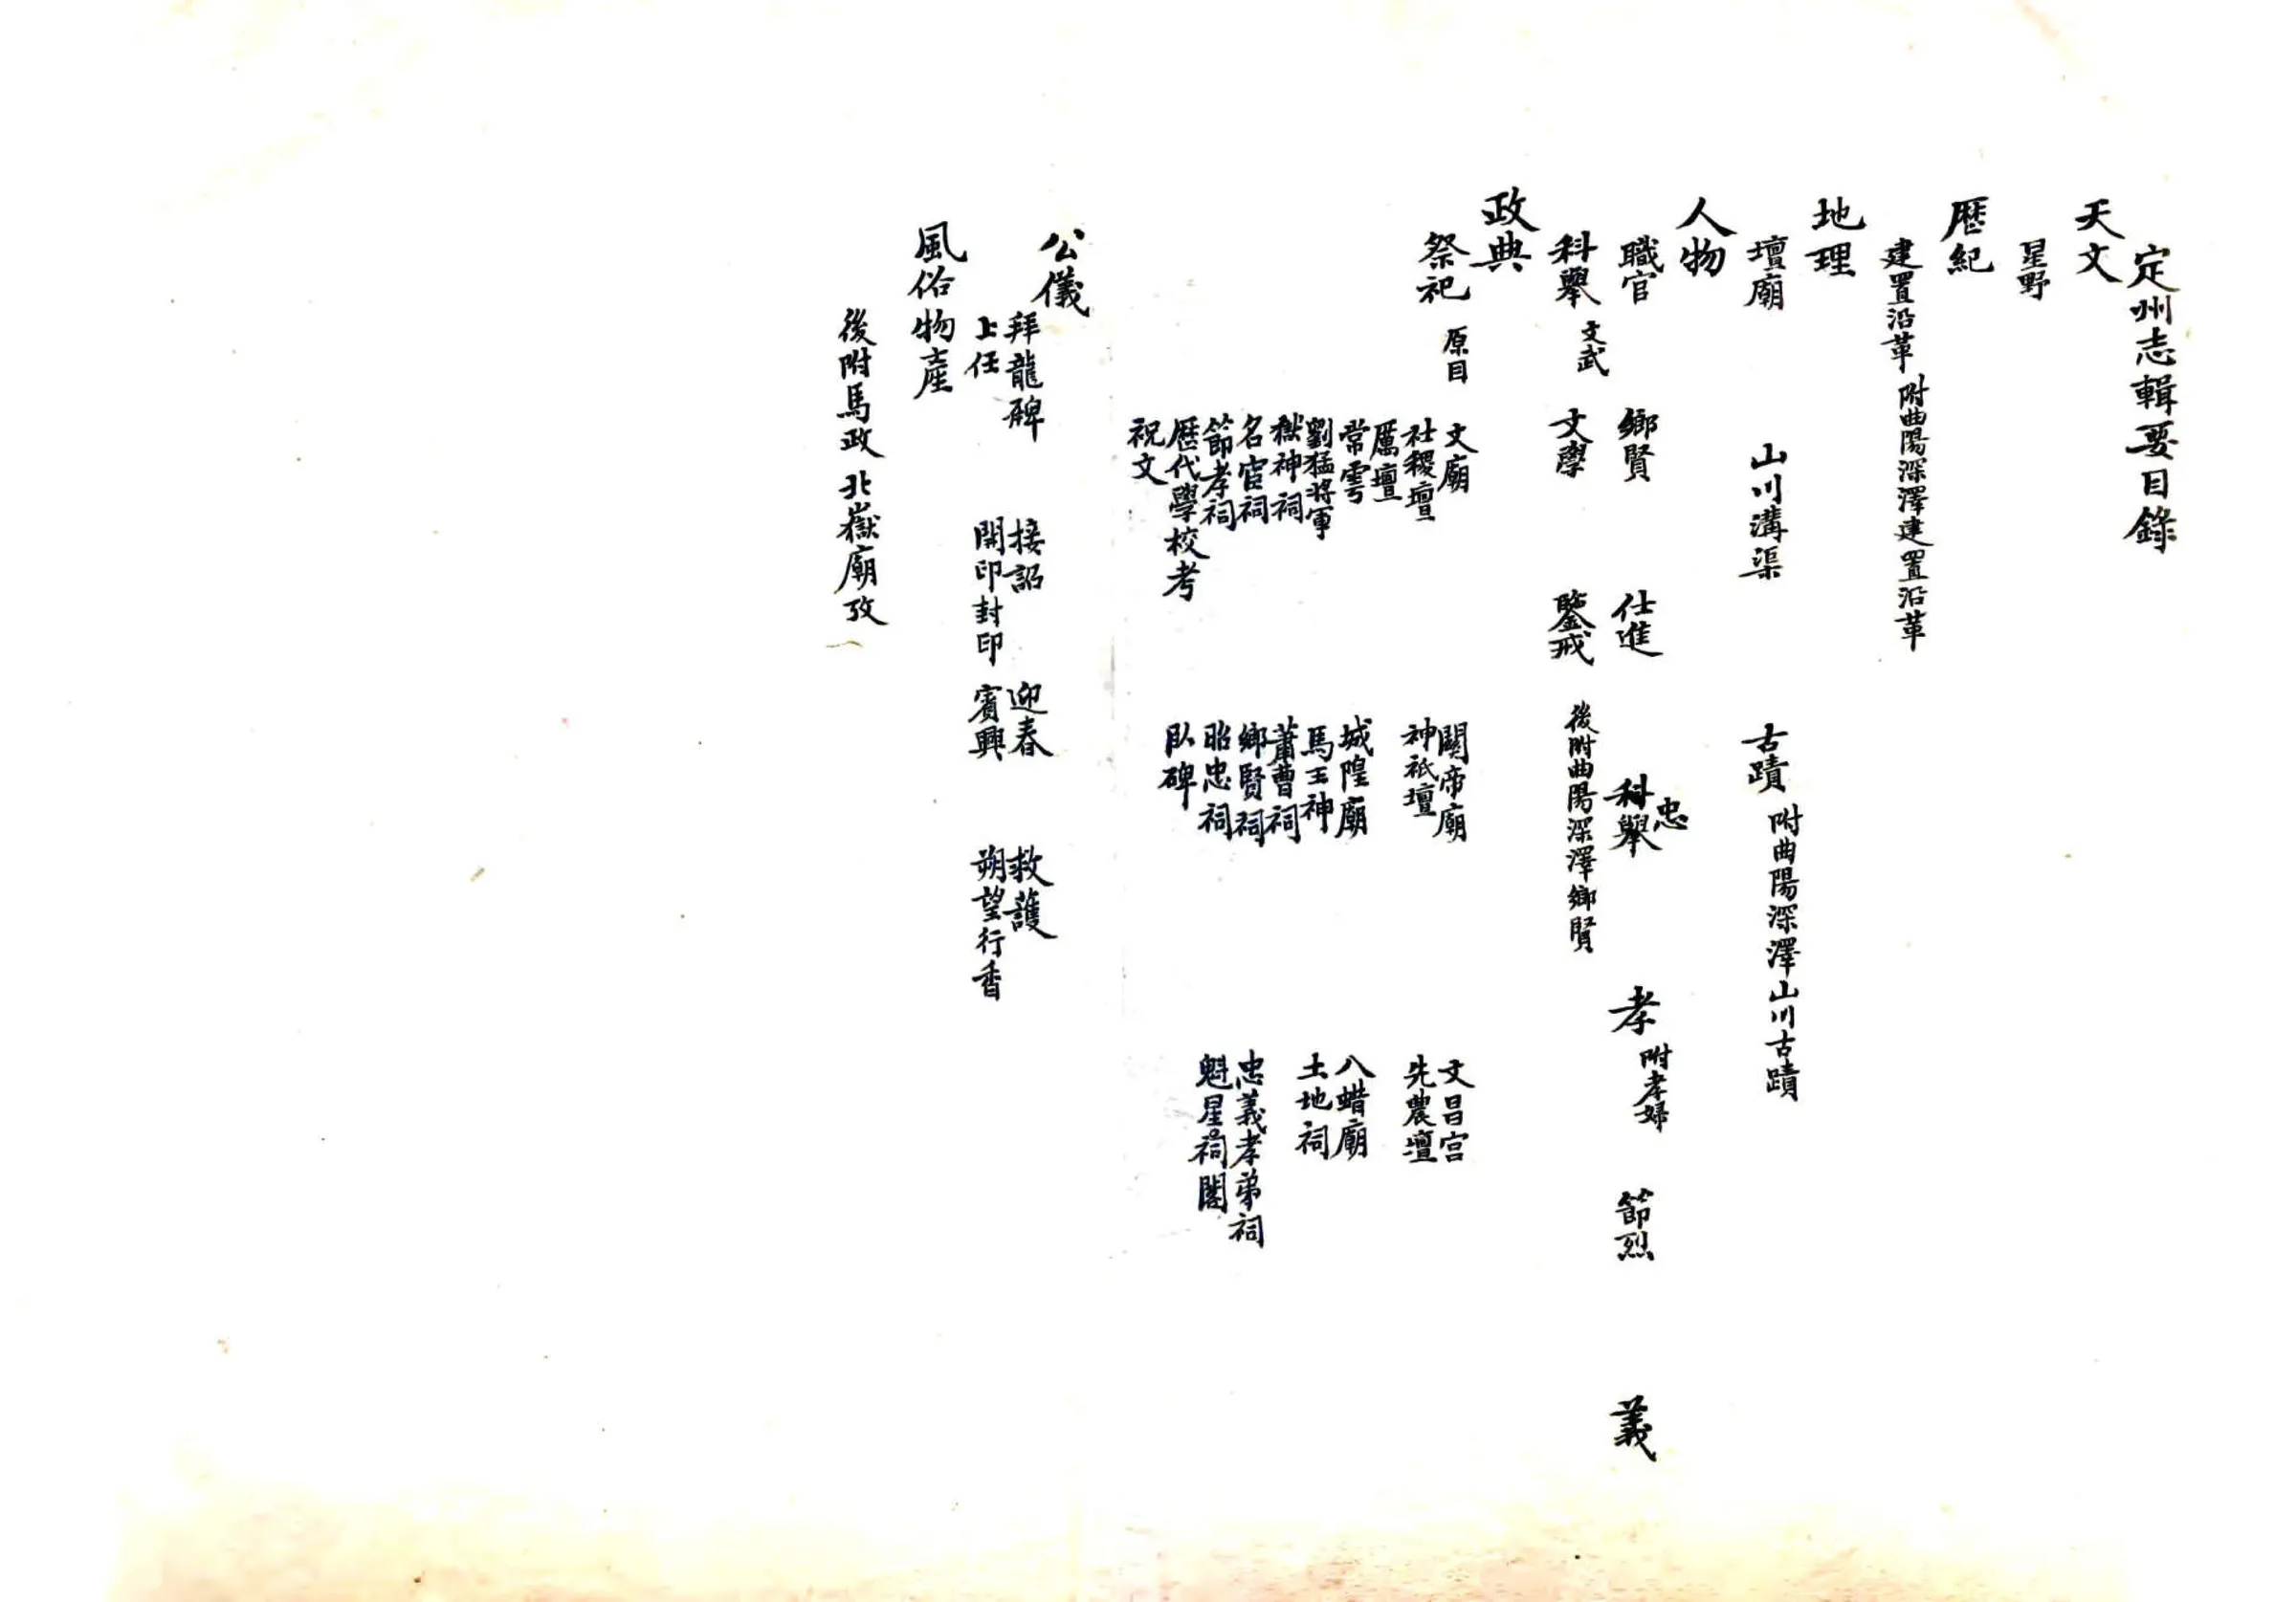 定州志輯要目錄
天文
星野
歷紀
建置沿革 附曲陽深澤建置沿革
地理
壇廟 山川溝渠 古蹟 附曲陽深澤山川古蹟
人物
職官 鄉賢 仕進 科舉 忠 孝 附孝婦 節烈 義
科舉 文武 文學 鑒戒 後附曲陽深澤鄉賢
政典
祭祀 原目 文廟 關帝廟 文昌宮
社稷壇 神祇壇 先農壇
厲壇
常雩 城隍廟 八蜡廟
劉猛將軍 馬王神 土地祠
獄神祠 蕭曹祠
名宦祠 鄉賢祠 忠義孝弟祠
節孝祠 昭忠祠 魁星祠閣
歷代學校考 臥碑
祝文
公儀
拜龍牌 接詔 迎春 救護
上任 開印封印 賓興 朔望行香
風俗物產
後附馬政 北嶽廟攷